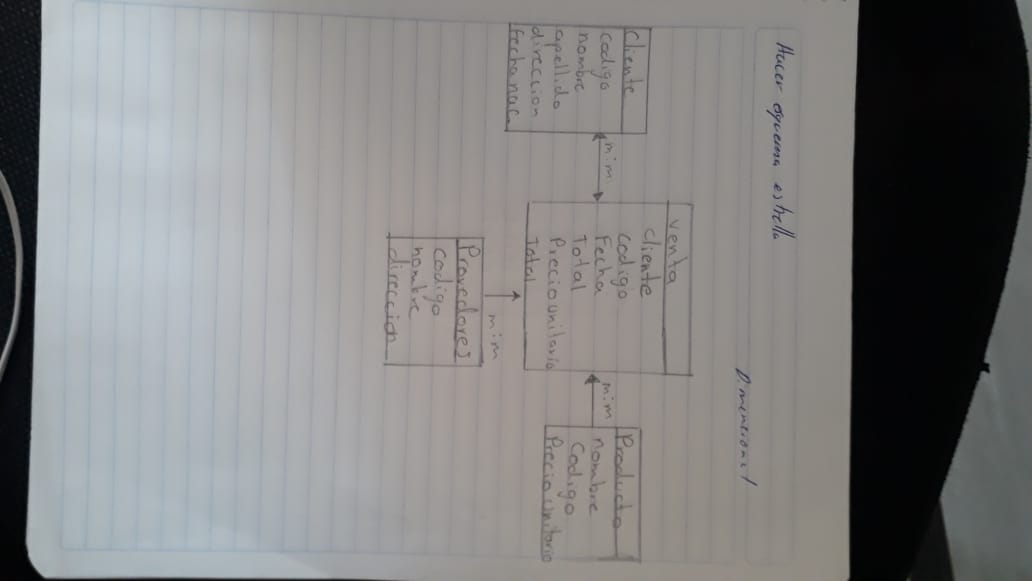 Hacer esquema estrella
Dimensional
Cliente
codigo
nombre
apellido
direccion
fechanac.
m:m.
venta
cliente
codigo
Fecha
Total
Preciounitario
Total
m:m
Producto
nombre
Codigo
Preciounitario
m:m
Provedores
codigo
nombre
direccion